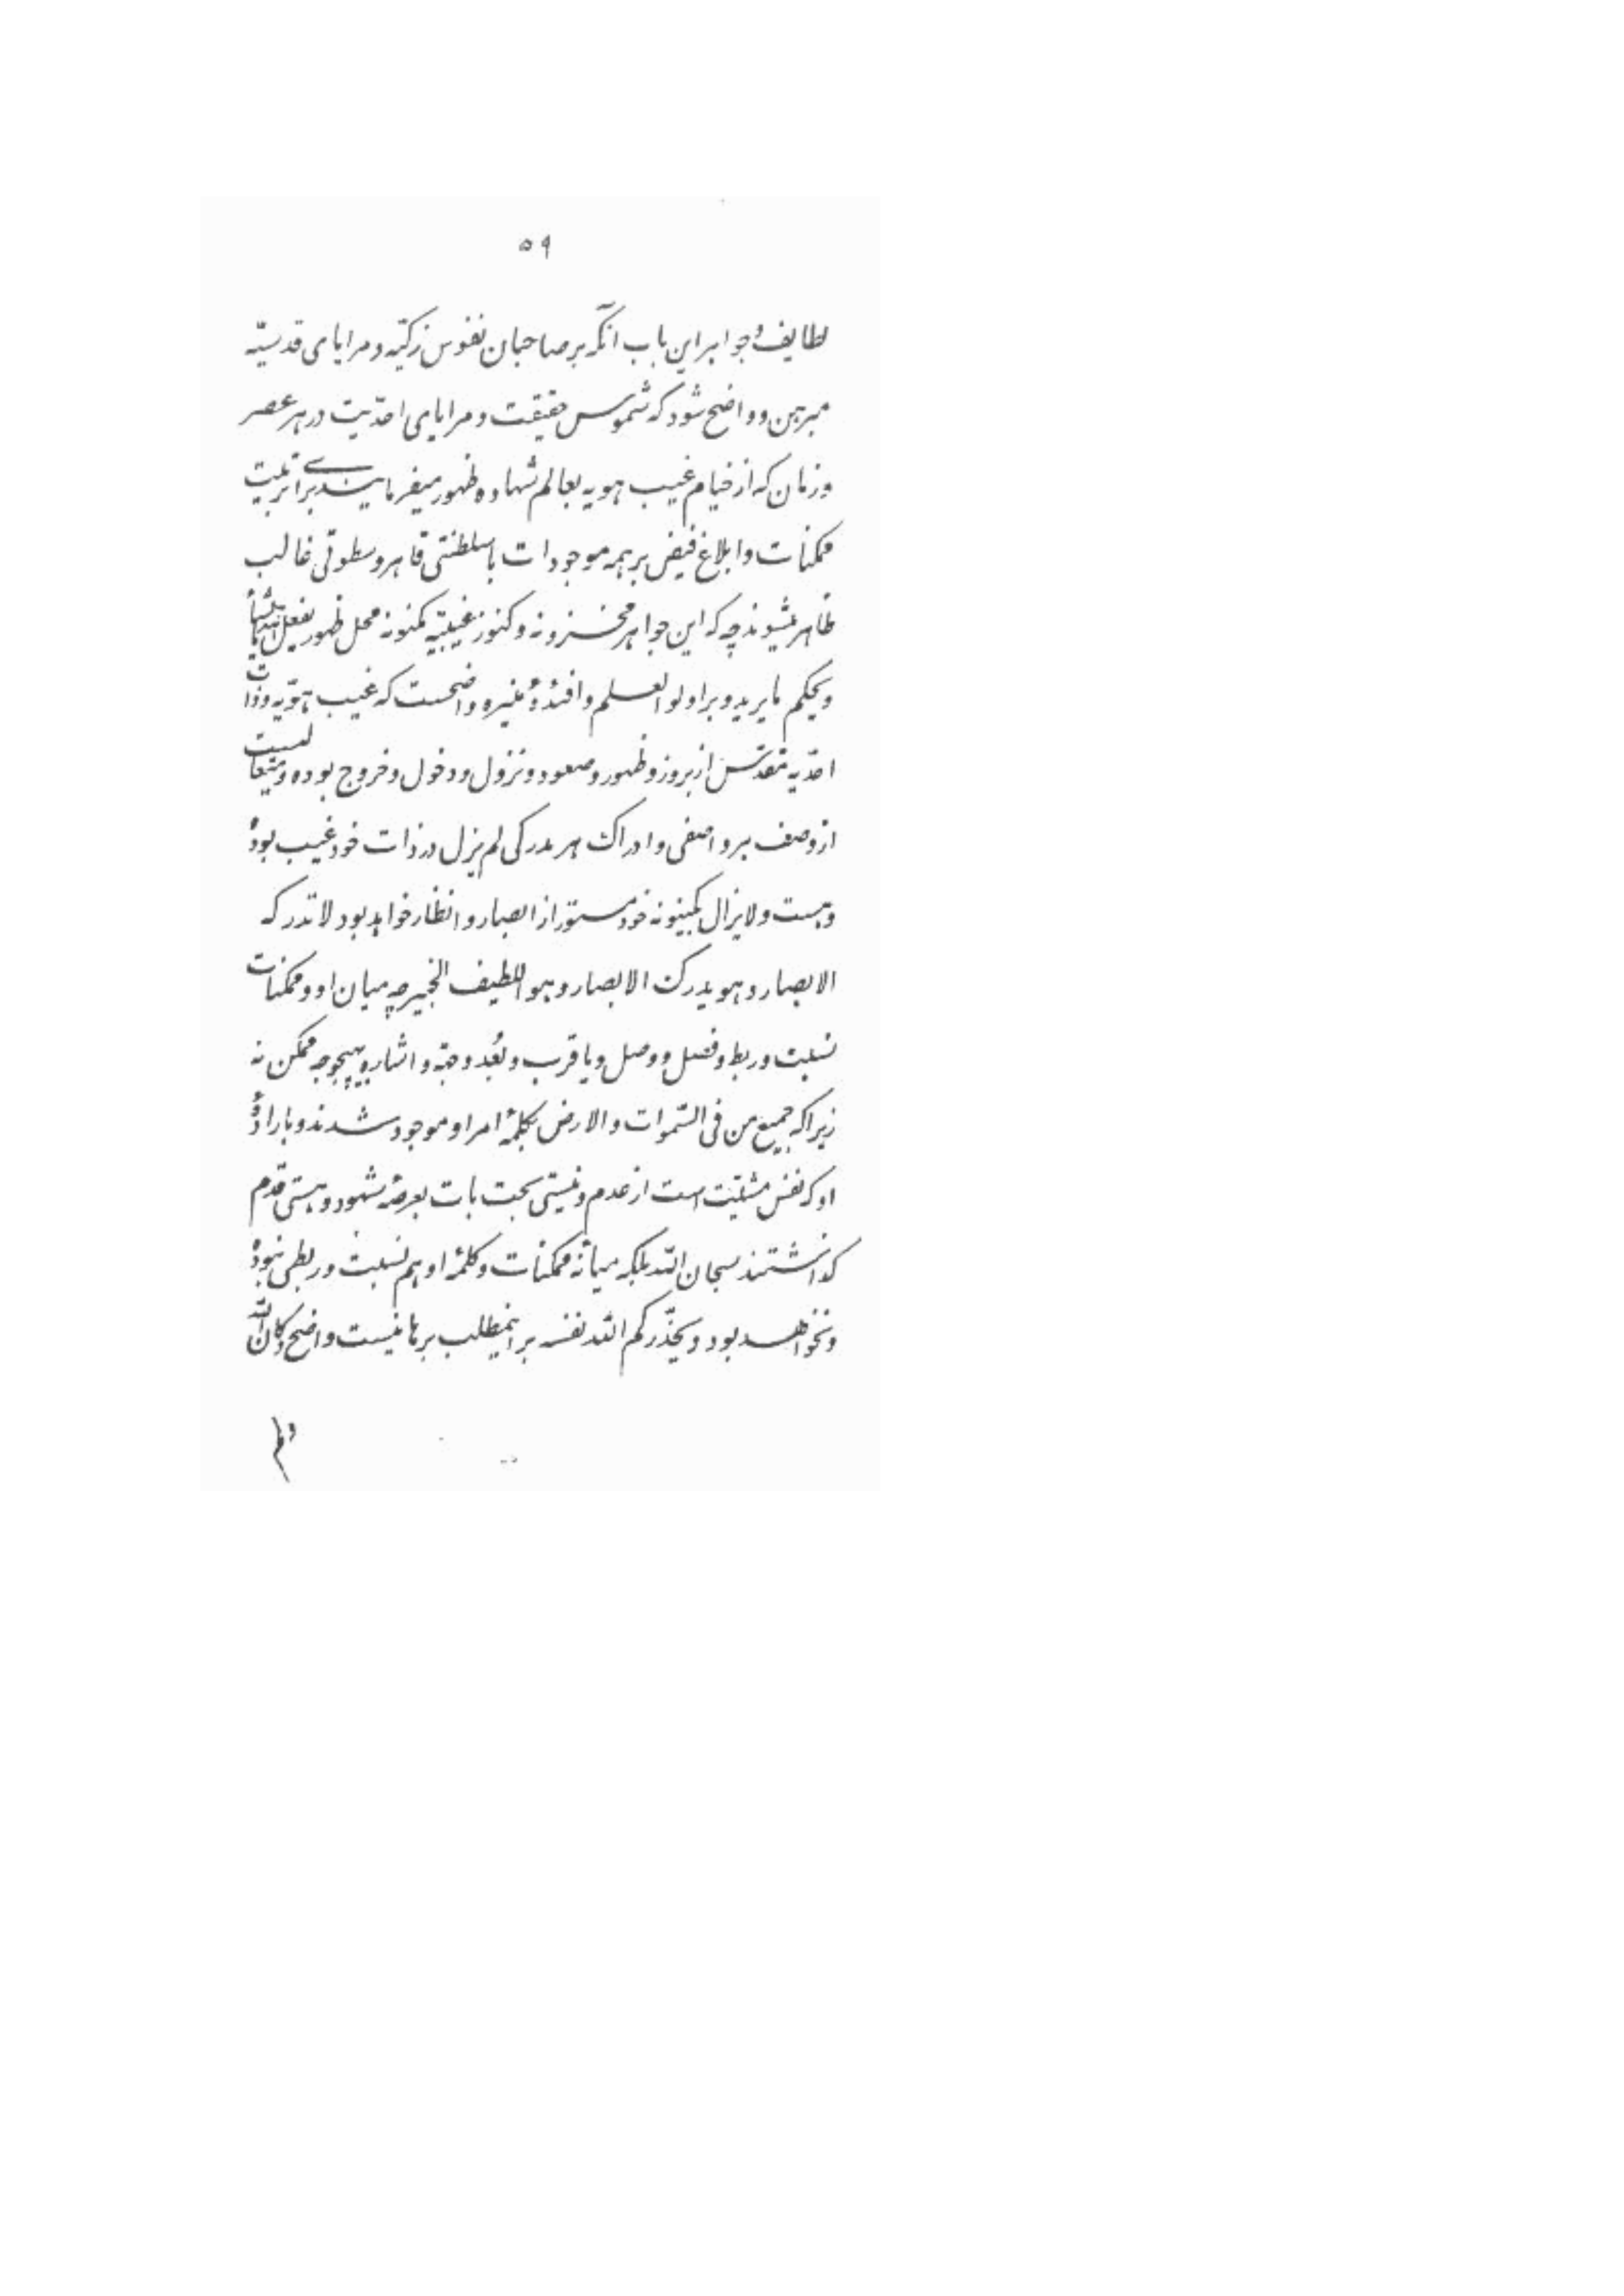 ۵۹
لطایف و جواهر این باب آنکه بر صاحبان نفوس زکیّه و مرایای قدسیّه
مبرهن و واضح شود که شموس حقیقت و مرایای احدّیت در هر عصر
و زمان که از خیام غیب هویه بعالم شهاده ظهور میفرمایند برای تربیت
ممکنات و ابلاغ فیض بر همه موجودات با سلطنتی قاهر و سطوتی غالب
ظاهر میشوند چه که این جواهر مخزونه و کنوز غیبیّه مکنونه محل ظهور یفعل الله ما یشأ
و یحکم ما یرید و بر اولو العلم و افئدهٔ منیره واضحست که غیب هوّیه و ذات
احدّیه مقدّس از بروز و ظهور و صعود و نزول و دخول و خروج بوده و متعالیست
از وصف هر واصفی و ادراک هر مدرکی لم یزل در ذات خود غیب بوده
و هست و لا یزال بکینونه خود مستور از ابصار و انظار خواهد بود لا تدرکه
الابصار و هو یدرک الابصار و هو اللطیف الخبیر چه میان او و ممکنات
نسبت و ربط و فصل و وصل و یا قرب و بُعد و جهة و اشاره بهیچوجه ممکن نه
زیرا که جمیع من فی السّموات و الارض بکلمهٔ امر او موجود شدند و بارادهٔ
او که نفس مشیّت است از عدم و نیستی بحت بات بعرصهٔ شهود و هستی قدم
گذاشتند سبحان الله بلکه میانهٔ ممکنات و کلمهٔ او هم نسبت و ربطی نبوده
و نخواهد بود و یحذّرکم الله نفسه بر اینمطلب برهانیست واضح و کان الله